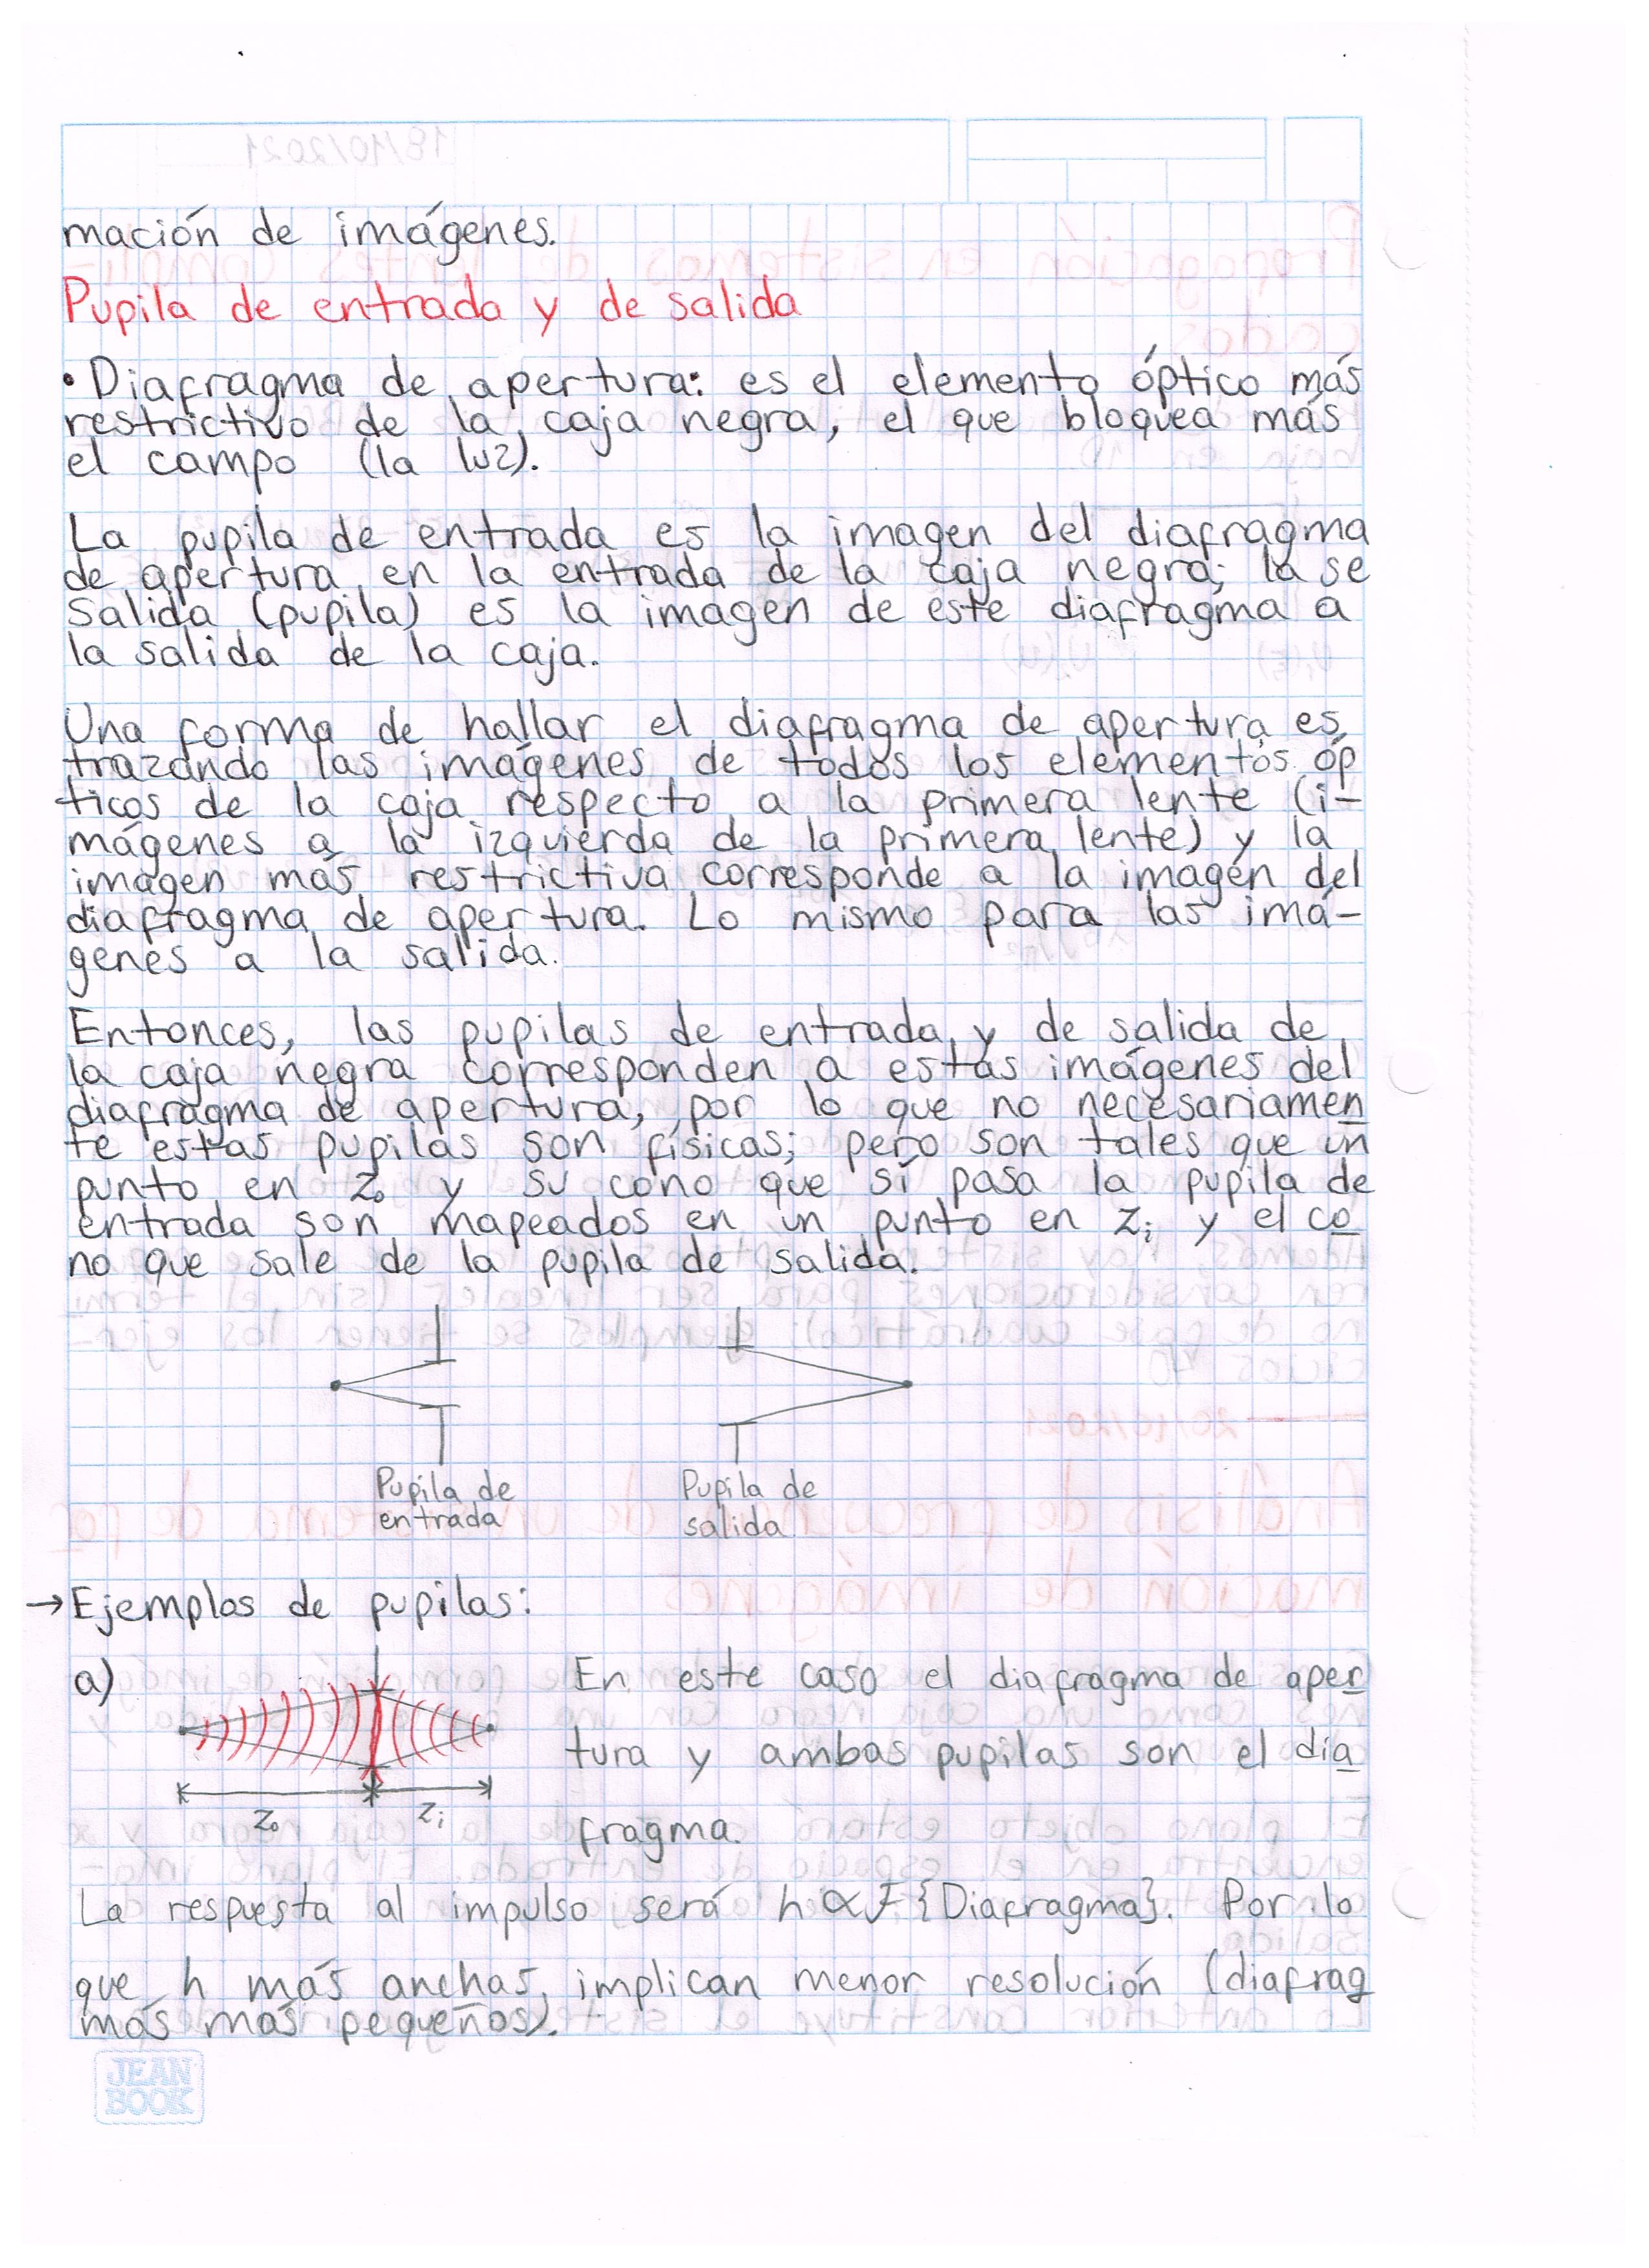 mación de imágenes.
Pupila de entrada y de salida
• Diafragma de apertura: es el elemento óptico más
restrictivo de la caja negra, el que bloquea más
el campo (la luz).
La pupila de entrada es la imagen del diafragma
de apertura en la entrada de la caja negra; la se
salida (pupila) es la imagen de este diafragma a
la salida de la caja.
Una forma de hallar el diafragma de apertura es
trazando las imágenes de todos los elementos óp
ticos de la caja respecto a la primera lente (i-
mágenes a la izquierda de la primera lente) y la
imagen más restrictiva corresponde a la imagen del
diafragma de apertura. Lo mismo para las imá-
genes a la salida.
Entonces, las pupilas de entrada y de salida de
la caja negra corresponden a estas imágenes del
diafragma de apertura, por lo que no necesariamen
te estas pupilas son físicas; pero son tales que un
punto en z₀ y su cono que sí pasa la pupila de
entrada son mapeados en un punto en zᵢ y el co
no que sale de la pupila de salida.
Pupila de
entrada
Pupila de
salida
→ Ejemplos de pupilas:
a)
z₀
zᵢ
En este caso el diafragma de aper
tura y ambas pupilas son el dia
fragma.
La respuesta al impulso será h ∝ ℱ{Diafragma}. Por lo
que h más anchas, implican menor resolución (diafrag
mas más pequeños).
JEAN
BOOK